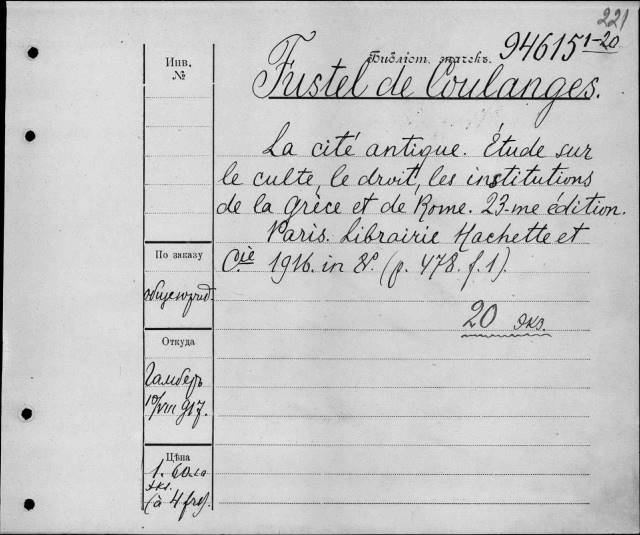 221
Библіот. значекъ. 94615 1-20
Fustel de Coulanges.
La cité antique. Étude sur
le culte, le droit, les institutions
de la Grèce et de Rome. 23-me édition.
Paris. Librairie Hachette et
Cie 1916. in 8º. (p. 478. f. 1).
20 экз.
Инв.
№
По заказу
общеюрид.
Откуда
Гамберъ
10/VIII 917.
Цѣна
1. 60
экз.
(à 4 fr.)